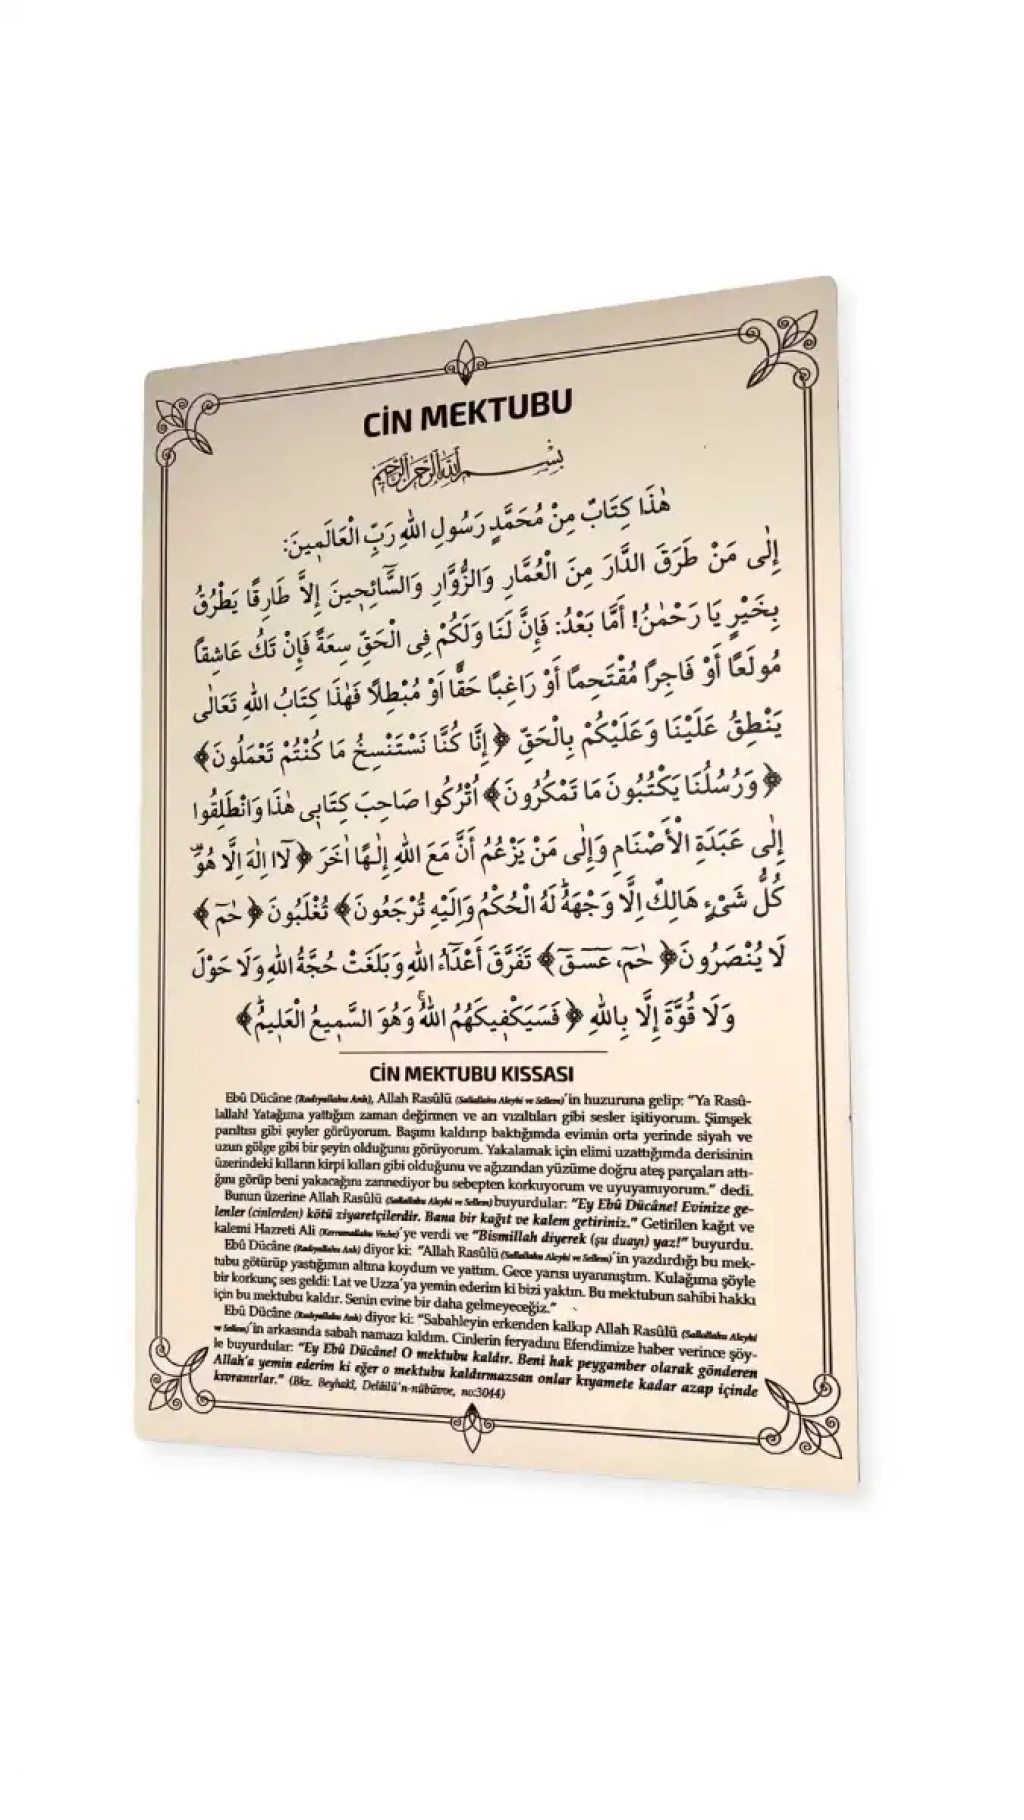 CİN MEKTUBU
بِسْمِ اللّٰهِ الرَّحْمٰنِ الرَّحِيمِ
هٰذَا كِتَابٌ مِنْ مُحَمَّدٍ رَسُولِ اللّٰهِ رَبِّ الْعَالَمِينَ:
إِلٰى مَنْ طَرَقَ الدَّارَ مِنَ الْعُمَّارِ وَالزُّوَّارِ وَالسَّائِحِينَ إِلاَّ طَارِقًا يَطْرُقُ
بِخَيْرٍ يَا رَحْمٰنُ! أَمَّا بَعْدُ: فَإِنَّ لَنَا وَلَكُمْ فِى الْحَقِّ سِعَةً فَإِنْ تَكُ عَاشِقاً
مُولَعًا أَوْ فَاجِراً مُقْتَحِمًا أَوْ رَاغِبًا حَقًّا أَوْ مُبْطِلًا فَهٰذَا كِتَابُ اللّٰهِ تَعَالٰى
يَنْطِقُ عَلَيْنَا وَعَلَيْكُمْ بِالْحَقِّ ﴿إِنَّا كُنَّا نَسْتَنْسِخُ مَا كُنْتُمْ تَعْمَلُونَ﴾
﴿وَرُسُلُنَا يَكْتُبُونَ مَا تَمْكُرُونَ﴾ اُتْرُكُوا صَاحِبَ كِتَابِى هٰذَا وَانْطَلِقُوا
إِلٰى عَبَدَةِ الْأَصْنَامِ وَإِلٰى مَنْ يَزْعُمُ أَنَّ مَعَ اللّٰهِ إِلٰهًا اٰخَرَ ﴿لَٓا اِلٰهَ اِلَّا هُوَ
كُلُّ شَىْءٍ هَالِكٌ اِلَّا وَجْهَهُ لَهُ الْحُكْمُ وَاِلَيْهِ تُرْجَعُونَ﴾ تُغْلَبُونَ ﴿حٰمٓ﴾
لَا يُنْصَرُونَ ﴿حٰمٓ، عٓسٓقٓ﴾ تَفَرَّقَ أَعْدَٓاءُ اللّٰهِ وَبَلَغَتْ حُجَّةُ اللّٰهِ وَلَا حَوْلَ
وَلَا قُوَّةَ إِلَّا بِاللّٰهِ ﴿فَسَيَكْفِيكَهُمُ اللّٰهُ وَهُوَ السَّمِيعُ الْعَلِيمُ﴾
CİN MEKTUBU KISSASI
Ebû Dücâne (Radıyallahu Anh), Allah Rasûlü (Sallallahu Aleyhi ve Sellem)'in huzuruna gelip: "Ya Rasû-
lallah! Yatağıma yattığım zaman değirmen ve arı vızıltıları gibi sesler işitiyorum. Şimşek
parıltısı gibi şeyler görüyorum. Başımı kaldırıp baktığımda evimin orta yerinde siyah ve
uzun gölge gibi bir şeyin olduğunu görüyorum. Yakalamak için elimi uzattığımda derisinin
üzerindeki kılların kirpi kılları gibi olduğunu ve ağızından yüzüme doğru ateş parçaları attı-
ğını görüp beni yakacağını zannediyor bu sebepten korkuyorum ve uyuyamıyorum." dedi.
Bunun üzerine Allah Rasûlü (Sallallahu Aleyhi ve Sellem) buyurdular: "Ey Ebû Dücâne! Evinize ge-
lenler (cinlerden) kötü ziyaretçilerdir. Bana bir kağıt ve kalem getiriniz." Getirilen kağıt ve
kalemi Hazreti Ali (Kerramallahu Veche)'ye verdi ve "Bismillah diyerek (şu duayı) yaz!" buyurdu.
Ebû Dücâne (Radıyallahu Anh) diyor ki: "Allah Rasûlü (Sallallahu Aleyhi ve Sellem)'in yazdırdığı bu mek-
tubu götürüp yastığımın altına koydum ve yattım. Gece yarısı uyanmıştım. Kulağıma şöyle
bir korkunç ses geldi: Lat ve Uzza'ya yemin ederim ki bizi yaktın. Bu mektubun sahibi hakkı
için bu mektubu kaldır. Senin evine bir daha gelmeyeceğiz."
Ebû Dücâne (Radıyallahu Anh) diyor ki: "Sabahleyin erkenden kalkıp Allah Rasûlü (Sallallahu Aleyhi
ve Sellem)'in arkasında sabah namazı kıldım. Cinlerin feryadını Efendimize haber verince şöy-
le buyurdular: "Ey Ebû Dücâne! O mektubu kaldır. Beni hak peygamber olarak gönderen
Allah'a yemin ederim ki eğer o mektubu kaldırmazsan onlar kıyamete kadar azap içinde
kıvranırlar." (Bkz. Beyhakî, Delâilü'n-nübüvve, no:3044)